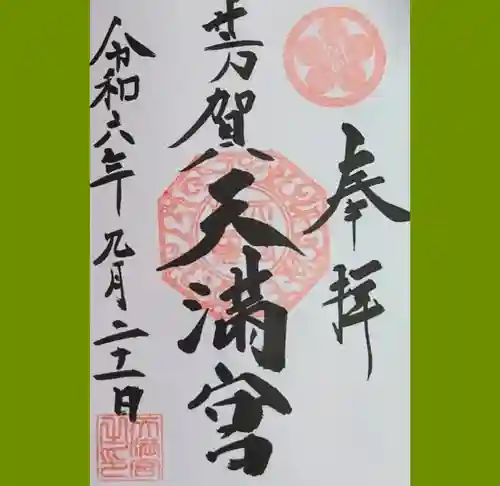 奉拝
芳賀天満宮
令和六年九月二十一日